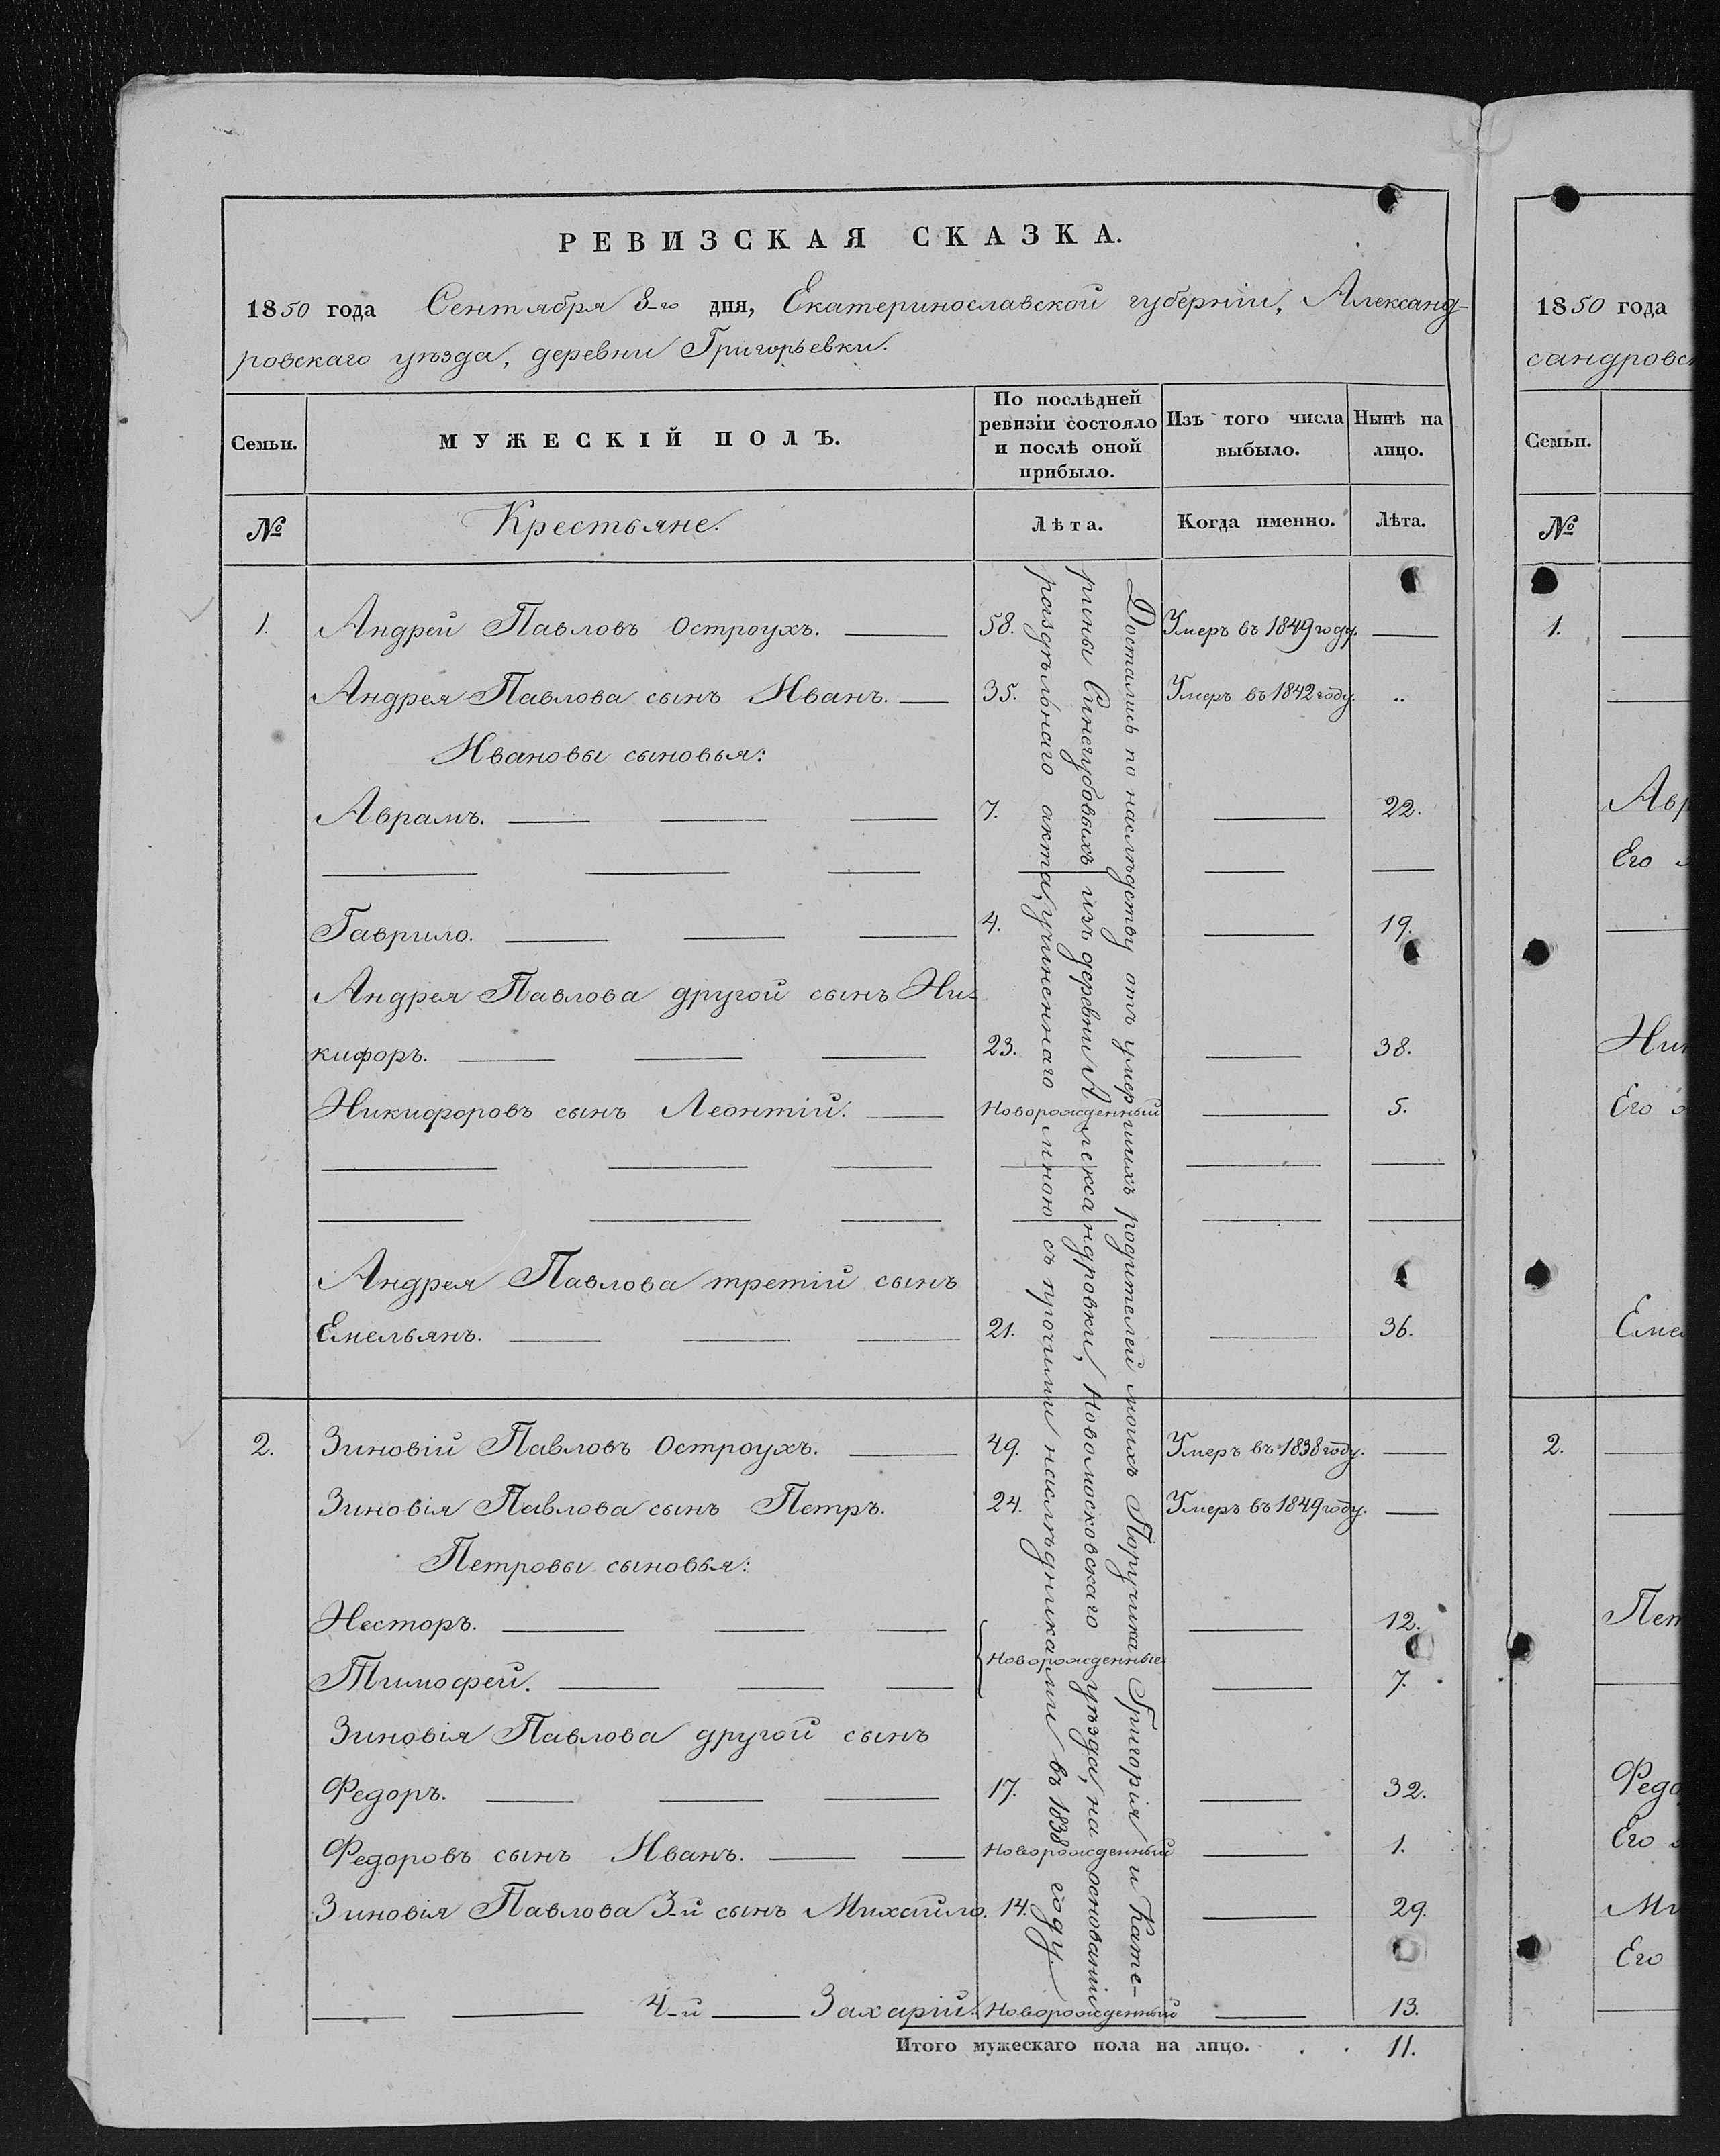 РЕВИЗСКАЯ СКАЗКА.
1850 года Сентября 8-го дня, Екатеринославской губернiи, Александ-
ровскаго уѣзда, деревни Григорьевки.
Семьи.
МУЖЕСКIЙ ПОЛЪ.
По послѣдней
ревизiи состояло
и послѣ оной
прибыло.
Изъ того числа
выбыло.
Нынѣ на
лицо.
№ Крестьяне. Лѣта. Когда именно. Лѣта.
1. Андрей Павловъ Остроухъ. 58. Умеръ въ 1849 году.
Андрея Павлова сынъ Иванъ. 35. Умеръ въ 1842 году. „
Ивановы сыновья:
Аврамъ. 7. 22.
Гаврило. 4. 19.
Андрея Павлова другой сынъ Ни-
кифоръ. 23. 38.
Никифоровъ сынъ Леонтiй. Новорожденный 5.
Андрея Павлова третiй сынъ
Емельянъ. 21. 36.
2. Зиновiй Павловъ Остроухъ. 49. Умеръ въ 1838 году.
Зиновiя Павлова сынъ Петръ. 24. Умеръ въ 1849 году.
Петровы сыновья:
Несторъ. 12.
Новорожденные
Тимофей. 7.
Зиновiя Павлова другой сынъ
Федоръ. 17. 32.
Федоровъ сынъ Иванъ. Новорожденный 1.
Зиновiя Павлова 3-й сынъ Михайло. 14. 29.
4-й Захарiй. Новорожденный 13.
Итого мужескаго пола на лицо. . . 11.
Достались по наслѣдству отъ умершихъ родителей моихъ Поручика Григорiя и Кате-
рины Синегубовыхъ изъ деревни Александровки, Новомосковскаго уѣзда, на основанiи
раздѣльнаго акта, учиненнаго мною съ прочими наслѣдниками въ 1838 году.
1850 года
сандровс
Семьи.
№
1.
Авр
Его
Ник
Его
Емел
2.
Пет
Федо
Его
Ми
Его